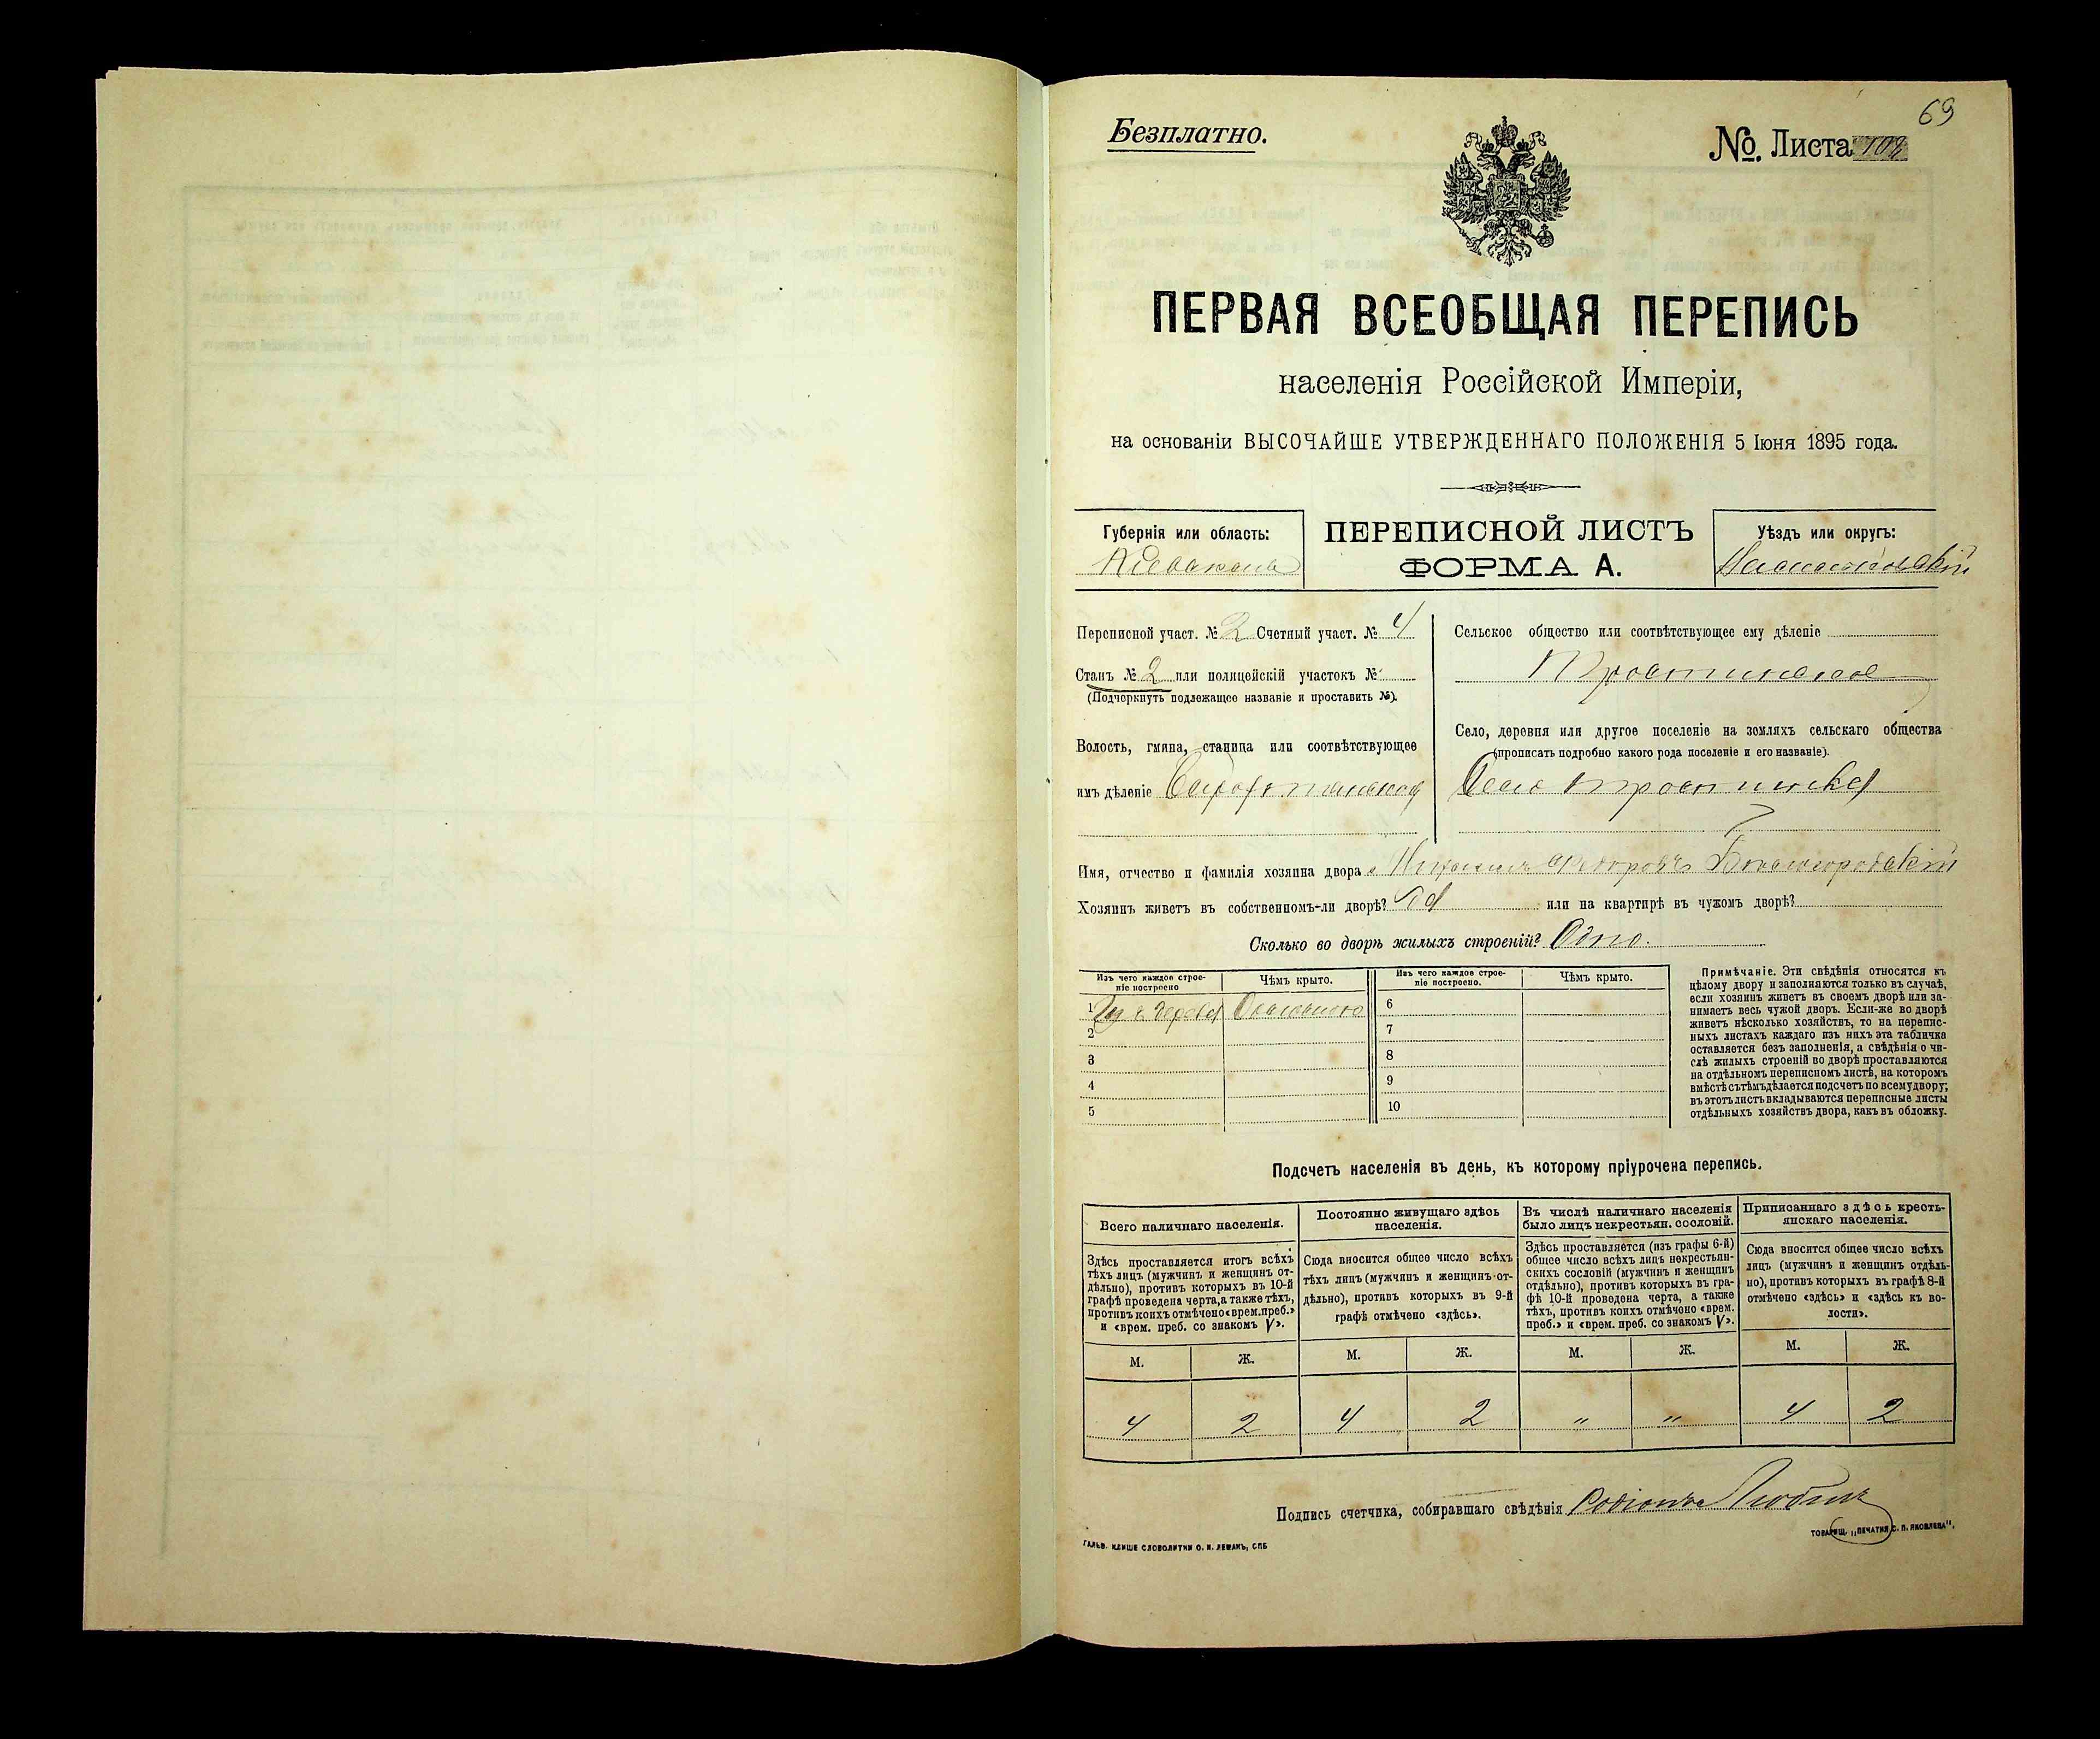 69
Безплатно.
№. Листа 108
ПЕРВАЯ ВСЕОБЩАЯ ПЕРЕПИСЬ
населенія Россійской Имперіи,
на основаніи ВЫСОЧАЙШЕ УТВЕРЖДЕННАГО ПОЛОЖЕНІЯ 5 Іюня 1895 года.
Губернія или область:
ПЕРЕПИСНОЙ ЛИСТЪ
ФОРМА А.
Уѣздъ или округъ:
Переписной участ. № 2 Счетный участ. № 4
Станъ № 2 или полицейскій участокъ №
(Подчеркнуть подлежащее названіе и проставить №).
Волость, гмина, станица или соотвѣтствующее
имъ дѣленіе
Сельское общество или соотвѣтствующее ему дѣленіе
Тростинское
Село, деревня или другое поселеніе на земляхъ сельскаго общества
(прописать подробно какого рода поселеніе и его названіе).
Село Тростинка
Имя, отчество и фамилія хозяина двора
Хозяинъ живетъ въ собственномъ-ли дворѣ? Да или на квартирѣ въ чужомъ дворѣ?
Сколько во дворѣ жилыхъ строеній? Одно.
Изъ чего каждое строе-
ніе построено
Чѣмъ крыто.
Изъ чего каждое строе-
ніе построено.
Чѣмъ крыто.
1 Изъ дерева Соломою
2
3
4
5
6
7
8
9
10
Примѣчаніе. Эти свѣдѣнія относятся къ
цѣлому двору и заполняются только въ случаѣ,
если хозяинъ живетъ въ своемъ дворѣ или за-
нимаетъ весь чужой дворъ. Если-же во дворѣ
живетъ нѣсколько хозяйствъ, то на перепис-
ныхъ листахъ каждаго изъ нихъ эта табличка
оставляется безъ заполненія, а свѣдѣнія о чи-
слѣ жилыхъ строеній во дворѣ проставляются
на отдѣльномъ переписномъ листѣ, на которомъ
вмѣстѣ съ тѣмъ дѣлается подсчетъ по всему двору;
въ этотъ листъ вкладываются переписные листы
отдѣльныхъ хозяйствъ двора, какъ въ обложку.
Подсчетъ населенія въ день, къ которому пріурочена перепись.
Всего наличнаго населенія.
Здѣсь проставляется итогъ всѣхъ
тѣхъ лицъ (мужчинъ и женщинъ от-
дѣльно), противъ которыхъ въ 10-й
графѣ проведена черта, а также тѣхъ,
противъ коихъ отмѣчено «врем. преб.»
и «врем. преб. со знакомъ V».
Постоянно живущаго здѣсь
населенія.
Сюда вносится общее число всѣхъ
тѣхъ лицъ (мужчинъ и женщинъ от-
дѣльно), противъ которыхъ въ 9-й
графѣ отмѣчено «здѣсь».
Въ числѣ наличнаго населенія
было лицъ некрестьян. сословій.
Здѣсь проставляется (изъ графы 6-й)
общее число всѣхъ лицъ некрестьян-
скихъ сословій (мужчинъ и женщинъ
отдѣльно), противъ которыхъ въ гра-
фѣ 10-й проведена черта, а также
тѣхъ, противъ коихъ отмѣчено «врем.
преб.» и «врем. преб. со знакомъ V».
Приписаннаго здѣсь кресть-
янскаго населенія.
Сюда вносится общее число всѣхъ
лицъ (мужчинъ и женщинъ отдѣль-
но), противъ которыхъ въ графѣ 8-й
отмѣчено «здѣсь» и «здѣсь къ во-
лости».
М. Ж. М. Ж. М. Ж. М. Ж.
4 2 4 2 „ „ 4 2
Подпись счетчика, собиравшаго свѣдѣнія
ГАЛЬВ. КЛИШЕ СЛОВОЛИТНИ О. И. ЛЕМАНЪ, СПБ
ТОВАРИЩ. „ПЕЧАТНЯ С. П. ЯКОВЛЕВА".